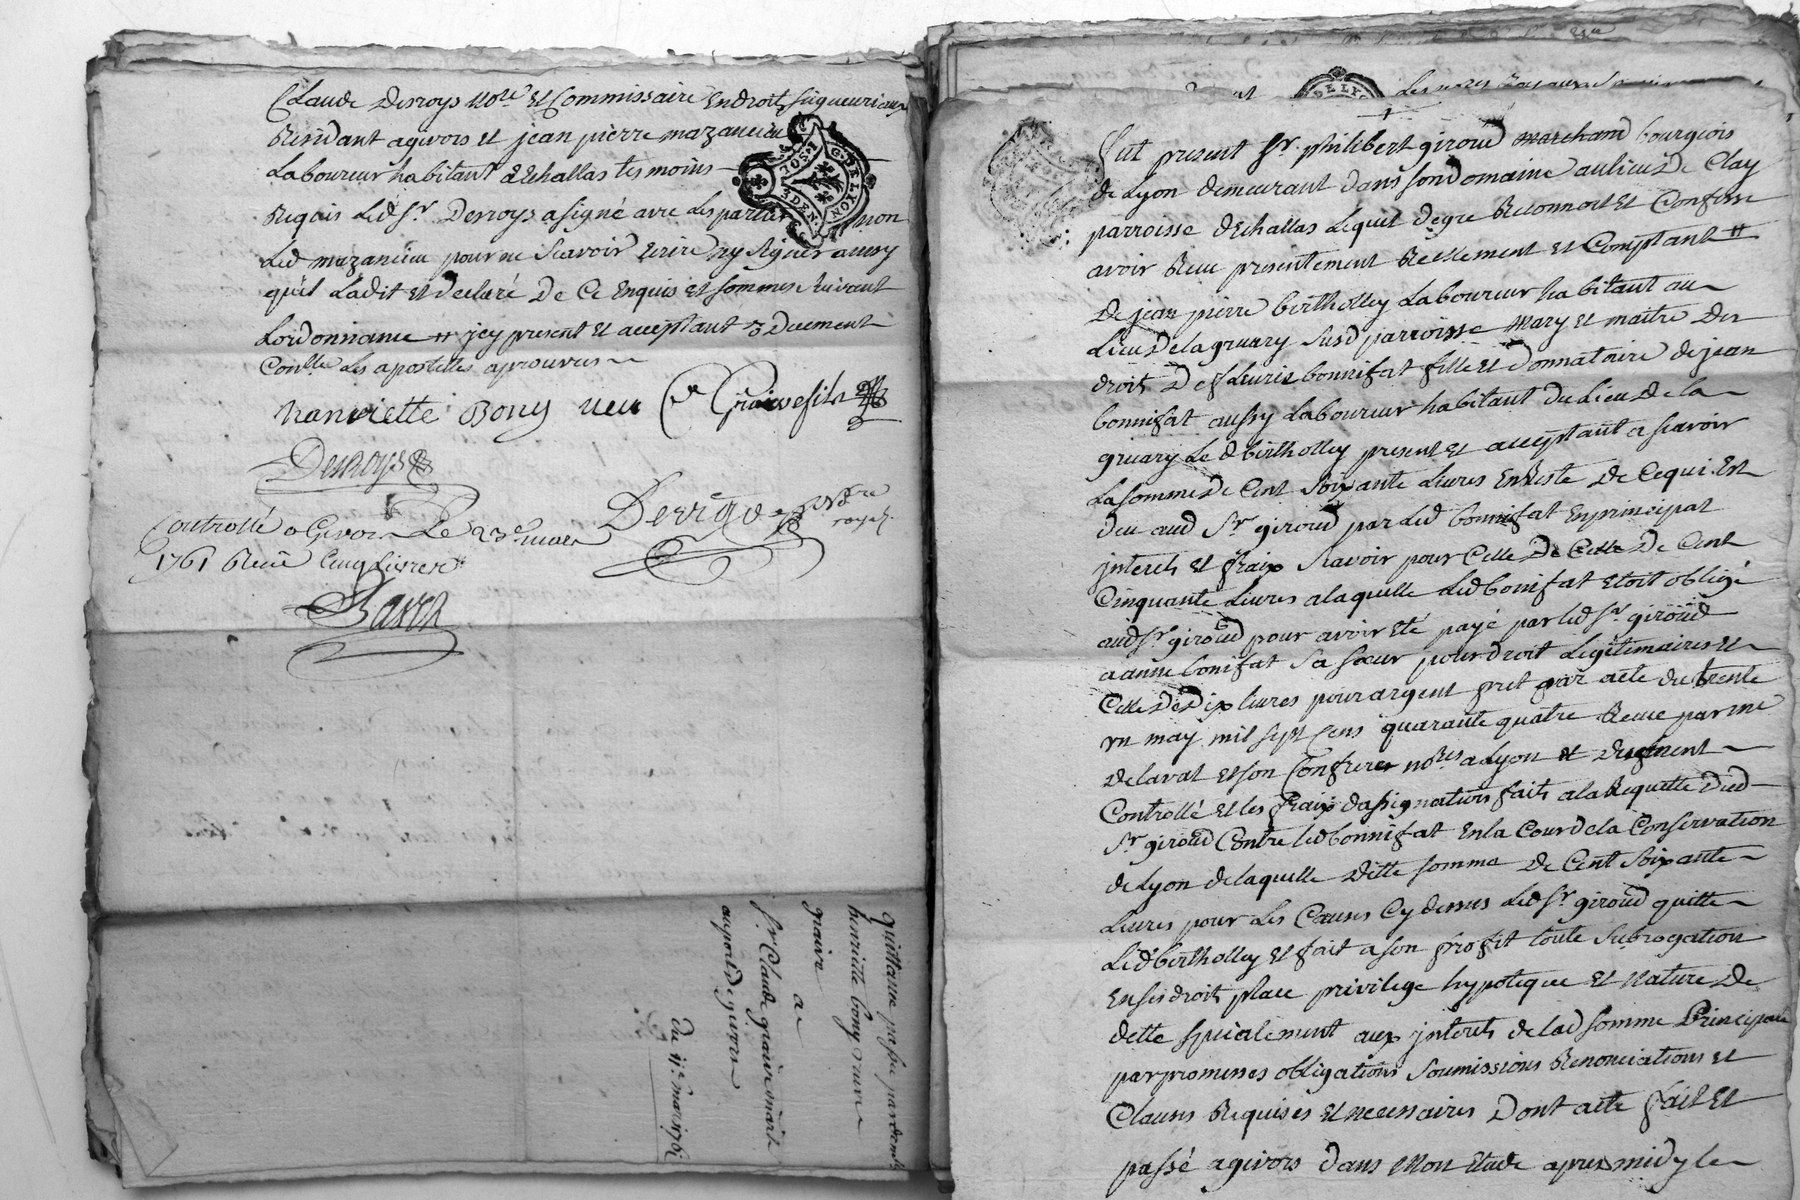 Claude Desroys no.re et Commissaire en droits seigneuriaux
Residant a givors et jean pierre mazancieu
Laboureur habitant a Echallas tesmoins
Requis Led Sr. Desroys a signé avec Les parties non
Led mazancieu pour ne Scavoir Ecrire ny signer aussy
qu'il La dit et declaré De Ce Enquis et sommes suivent
Lordonnance # jcy present et acceptant & Duement
Con.lle Les apostilles aprouvees
hanriette Bony veu Graive fils
Desroys
Controllé a Givors Le 23e mars
1761 Receu Cinq Livres
Derigo
no.re
royal
quittance passée par demlle
henriette bony veuve
graive
a
Sr. Claude graive mar.t
au port de givors
du 11e mars 1761
DE LYO
Fut present Sr. philibert giroud marchand bourgeois
de Lyon demeurant dans son domaine au lieu De Clay
parroisse d'Echallas Lequel de gre Reconnoit et Confesse
avoir Receu presentement Reellement et Comptant #
De jean pierre bertholley Laboureur habitant au
Lieu De la gruary susd parroisse mary et maitre Des
droits De fleurie bonnifat fille et donnataire de jean
bonnifat aussy Laboureur habitant du Lieu De la
gruary Led bertholley present et acceptant a scavoir
La somme De Cent soixante Livres En Reste De Ce qui Est
deu aud Sr. giroud par Led bonnifat En principal
jnterets et fraix scavoir pour Celle De Celle De Cent
Cinquante Livres a laquelle Led bonifat Etoit obligé
aud Sr. giroud pour avoir Eté payé par led Sr. giroud
a anne bonifat sa soeur pour droit Légitimaires et
Celle De Dix livres pour argent pret par acte du trente
un may mil sept Cens quarante quatre Receu par me
Delaval et son Confrere no.res a Lyon et Duement
Controllé et les fraix d'assignations faits a la Requette Dud
Sr. giroud Contre led bonnifat En la Cour de la Conservation
de Lyon de laquelle ditte somme De Cent soixante
Livres pour Les Causes Cy dessus Led Sr. giroud quitte
Led bertholley et fait a son profit toute subrogation
En ses droits place privilege hypoteque et Nature De
dette specialement aux jnterets de lad somme Principale
par promesses obligations Soumissions Renonciations et
Clauses Requises et necessaires Dont acte fait et
passé a givors dans Mon Etude apres midy le